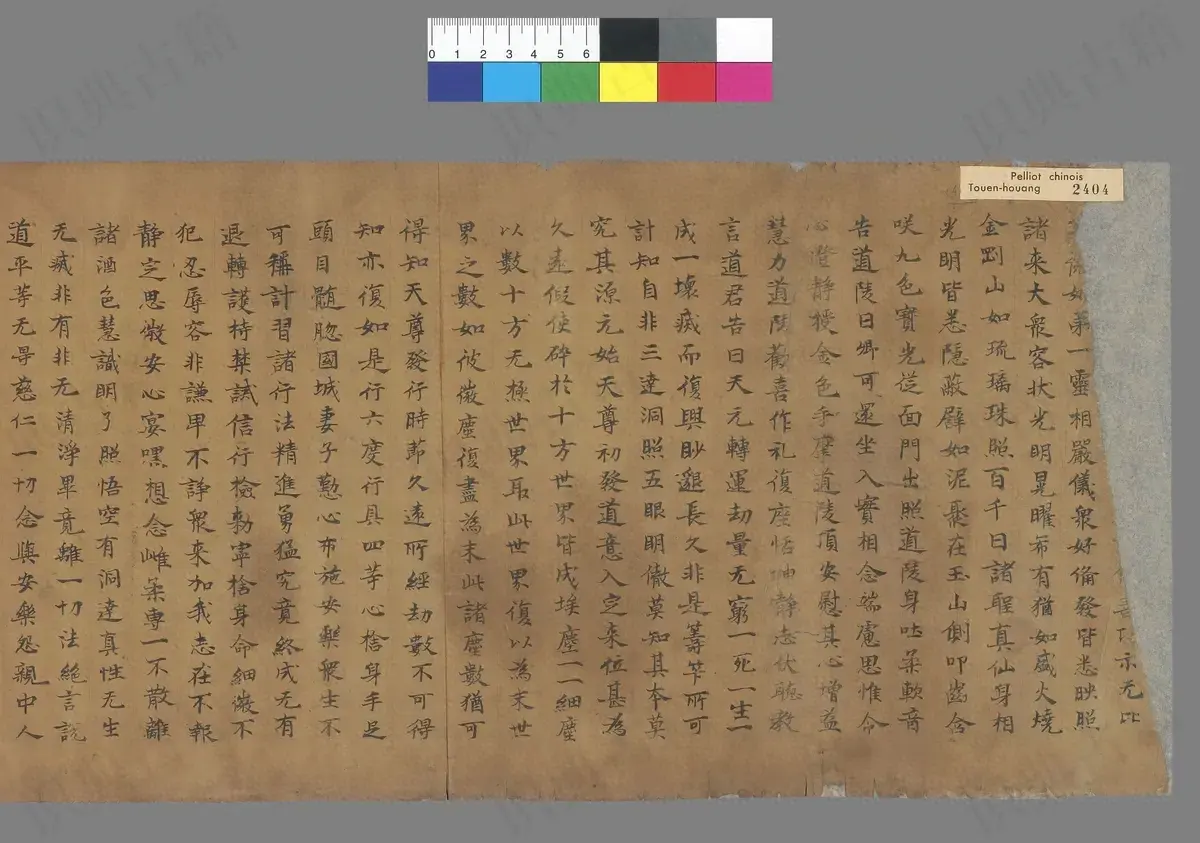 示无比
第一靈相嚴儀衆好俻發皆悉映照
諸來大衆容狀光明晃曜希有猶如盛火燒
金剛山如琉璃珠照百千日諸聖真仙身相
光明皆悉隱蔽辟如泥聚在玉山側叩齒含
咲九色寶光從面門出照道陵身吐柔軟音
告道陵曰卿可還坐入實相念端慮思惟令
心澄静授金色手摩道陵頂安慰其心增益
慧力道陵歡喜作礼復座恬神静志伏聽教
言道君告曰天元轉運劫量无窮一死一生一
成一壞烕而復興眇邈長久非是筭所可
計知自非三達洞照五眼明徹莫知其本莫
究其源元始天尊初發道意入定來位甚為
久遠假使碎於十方世界皆成埃塵一一細塵
以數十方无極世界取此世界復以為末世
界之數如彼微塵復盡為末此諸塵數猶可
得知天尊發行時節久遠所經劫數不可得
知亦復如是行六度行具四等心捨身手足
頭目髓腦國城妻子懃心布施安樂衆生不
可稱計習諸行法精進勇猛究竟終成无有
退轉護持禁誡信行檢勑寧捨身命細微不
犯忍辱容非謙卑不諍衆來加我志在不報
静定思微安心寂嘿想念雌柔專一不散離
諸酒色慧識明了照悟空有洞達真性无生
无烕非有非无清淨畢竟離一切法絕言說
道平等无㝵慈仁一切念與安樂怨親中人
Pelliot chinois
Touen-houang 2404
0 1 2 3 4 5 6
识典古籍